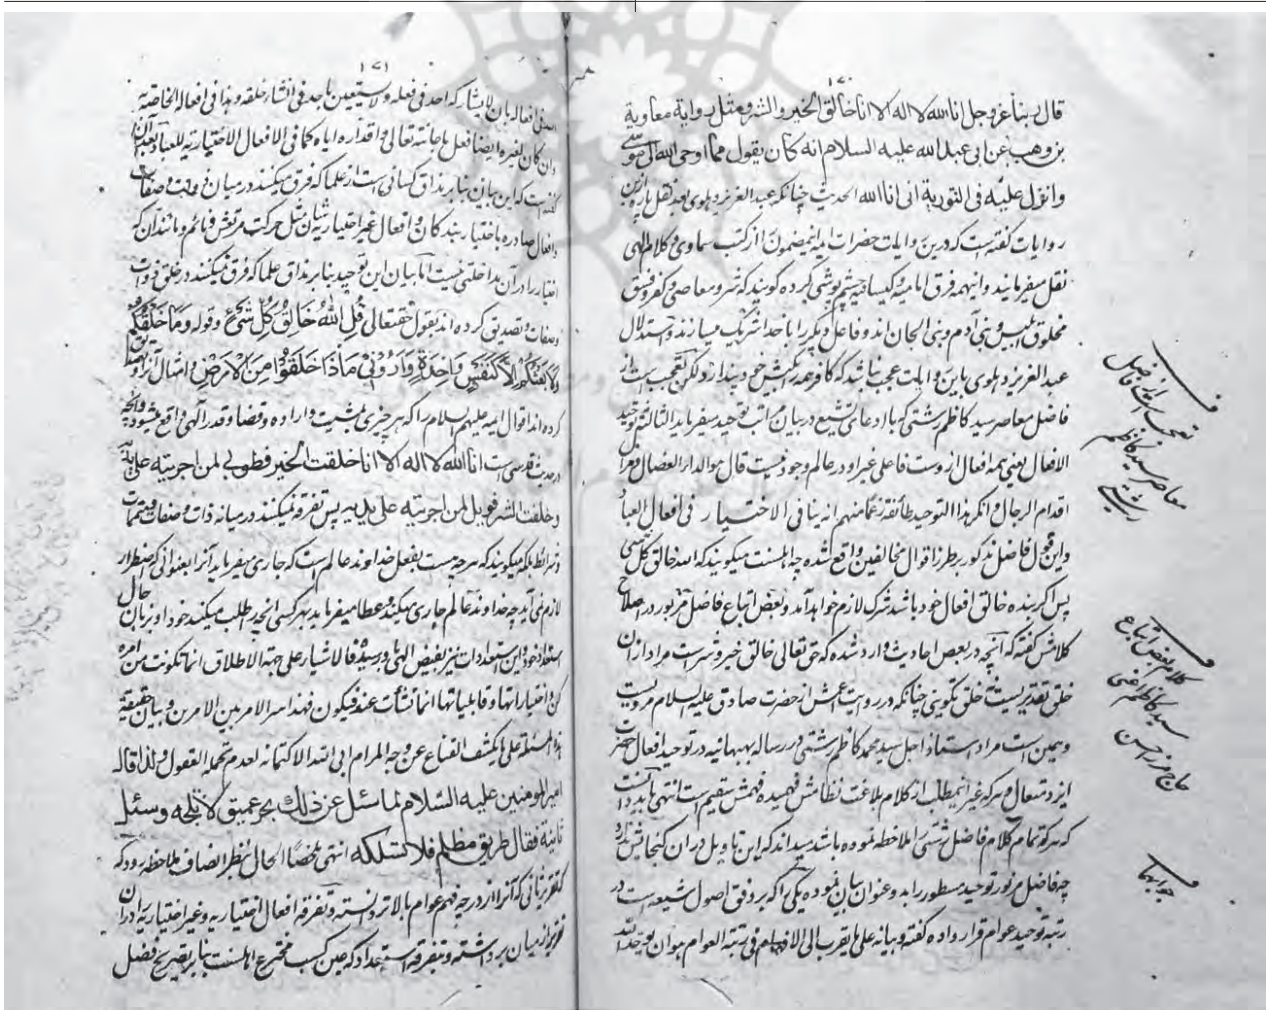 ١٧٠
قال ربنا عز وجل انا الله لا اله الا انا خالق الخير والشر ومثل رواية معاوية
بن وهب عن ابي عبد الله عليه السلام انه كان يقول مما اوحى الله الى موسى
وانزل عليه في التورية اني انا الله الحديث چنانكه عبد العزيز دهلوى بعد نقل پاره ازين
روايات گفته است كه درين روايات حضرات ائمه اينمضمون را از كتب سماوى و كلام الهى
نقل ميفرمايند و اينهمه فرق اماميه كيسانيه چشم پوشى كرده گويند كه شر و معاصى و كفر و فسق
مخلوق ابليس و بنى آدم و بنى الجان اند و فاعل ديگر را با خدا شريك ميسازند و استدلال
عبد العزيز دهلوى باين روايات عجب نباشد كه كافر همه را بكيش خود پندارد ولكن تعجب است از
فاضل معاصر سيد كاظم رشتى كه با ادعاى تشيع در بيان مراتب توحيد ميفرمايد الثالثة توحيد
الافعال يعنى همه افعال ازوست فاعلى غير او در عالم وجود نيست قال هو الداء العضال
اقدام الرجال انكر هذا التوحيد طائفة زعما منهم انه ينافي الاختيار في افعال العباد
و اين قول فاضل مذكور بر طرز اقوال مخالفين واقع شده چه اهل سنت ميگويند كه الله خالق كل شئ
پس اگر بنده خالق افعال خود باشد شرك لازم خواهد آمد و بعض اتباع فاضل مزبور در اصلاح
كلامش گفته كه آنچه در بعض احاديث وارد شده كه حق تعالى خالق خير و شر است مراد از ان
خلق تقدير است نه خلق تكوينى چنانكه در روايت اعمش از حضرت صادق عليه السلام مرويست
و همين است مراد استاذ اجل سيد محمد كاظم رشتى در رساله بهبهانيه در توحيد افعال حضرت
ايزد متعال و هر كه غير اينمطلب از كلام بلاغت نظامش فهميده فهمش سقيم است انتهى بايد دانست
كه هر كه تمام كلام فاضل رشتى را ملاحظه نموده باشد ميداند كه اين تاويل در ان گنجايش ندارد
چه فاضل مزبور توحيد مسطور را بدو عنوان بيان نموده يكى را كه بر وفق اصول شيعه است در
رتبه توحيد عوام قرار داده گفته و بيانه على ما يقرب الى الافهام في رتبة العوام هو ان يوحد الله
تعجب از فاضل
معاصر سيد كاظم
رشتى
كلام بعض اتباع
سيد كاظم رشتى
حاج ميرزا حسن
جوابها
١٧١
في افعاله بان لا يشاركه احد في فعله ولا يستعين باحد في انشاء خلقه وهذا في افعاله الخاصة
وان كان لغيره ايضا فعل باعانته تعالى واقداره اياه كما في الافعال الاختيارية للعباد بعد ان
گفته است كه اين بيان بنا بر مذاق كسانى است از علما كه فرق ميكنند در ميان ذوات و صفات
و افعال صادره با اختيار بندگان و افعال غير اختياريه شان مثل حركت مرتعش و نائم و مانند آن كه
اختيار را در آن مداخلتى نيست اما بيان اين توحيد بنا بر مذاق علما كه فرق نميكنند در خلق ذوات
و صفات و تصديق كرده اند بقول حقتعالى قُلِ اللهُ خَالِقُ كُلِّ شَيْءٍ وقوله وَمَا خَلْقُكُمْ
وَلَا بَعْثُكُمْ إِلَّا كَنَفْسٍ وَاحِدَةٍ وَأَرُونِي مَاذَا خَلَقُوا مِنَ الْأَرْضِ و امثال آن و تصديق
كرده اند اقوال ائمه عليهم السلام را كه هر چيزى بمشيت و اراده و قضا و قدر آلهى واقع ميشود و آنچه
در حديث قدسى است انا الله لا اله الا انا خلقت الخير فطوبى لمن اجريته على يديه
وخلقت الشر فويل لمن اجريته على يديه پس تفرقه نميكنند در ميانه ذات و صفات و متممات
و شرائط بلكه ميگويند كه هر چه هست بفعل خداوند عالم است كه جارى ميفرمايد آنرا بعنوانى كه اضطرار
لازم نمى آيد چه خداوند عالم جارى ميكند و عطا ميفرمايد بهر كسى آنچه را طلب ميكند خود او بزبان حال
استعداد خود و اين استعدادات نيز بفيض الهى و رسيده فالاشياء على جهة الاطلاق انما تكونت من امره
كن واختياراتها وقابلياتها انما نشأت عند فيكون فهذا سر الامر بين الامرين وبيان حقيقة
هذه المسئلة على ما يكشف القناع عن وجه المرام ابى الله الا كتمانه لعدم تحمله العقول ولذا قال
امير المومنين عليه السلام لما سئل عن ذلك بحر عميق لا تلجه وسئل
ثانية فقال طريق مظلم فلا تسلكه انتهى ملخصا الحال بنظر انصاف ملاحظه رود كه
تقرير ثانى كه آنرا از درجه فهم عوام بالاتر دانسته و تفرقه افعال اختياريه و غير اختياريه را در ان
تقرير از ميان برداشته و بتفرقه استعداد كه عين كسب مخترع اهل سنت بنا بر تصريح فضل